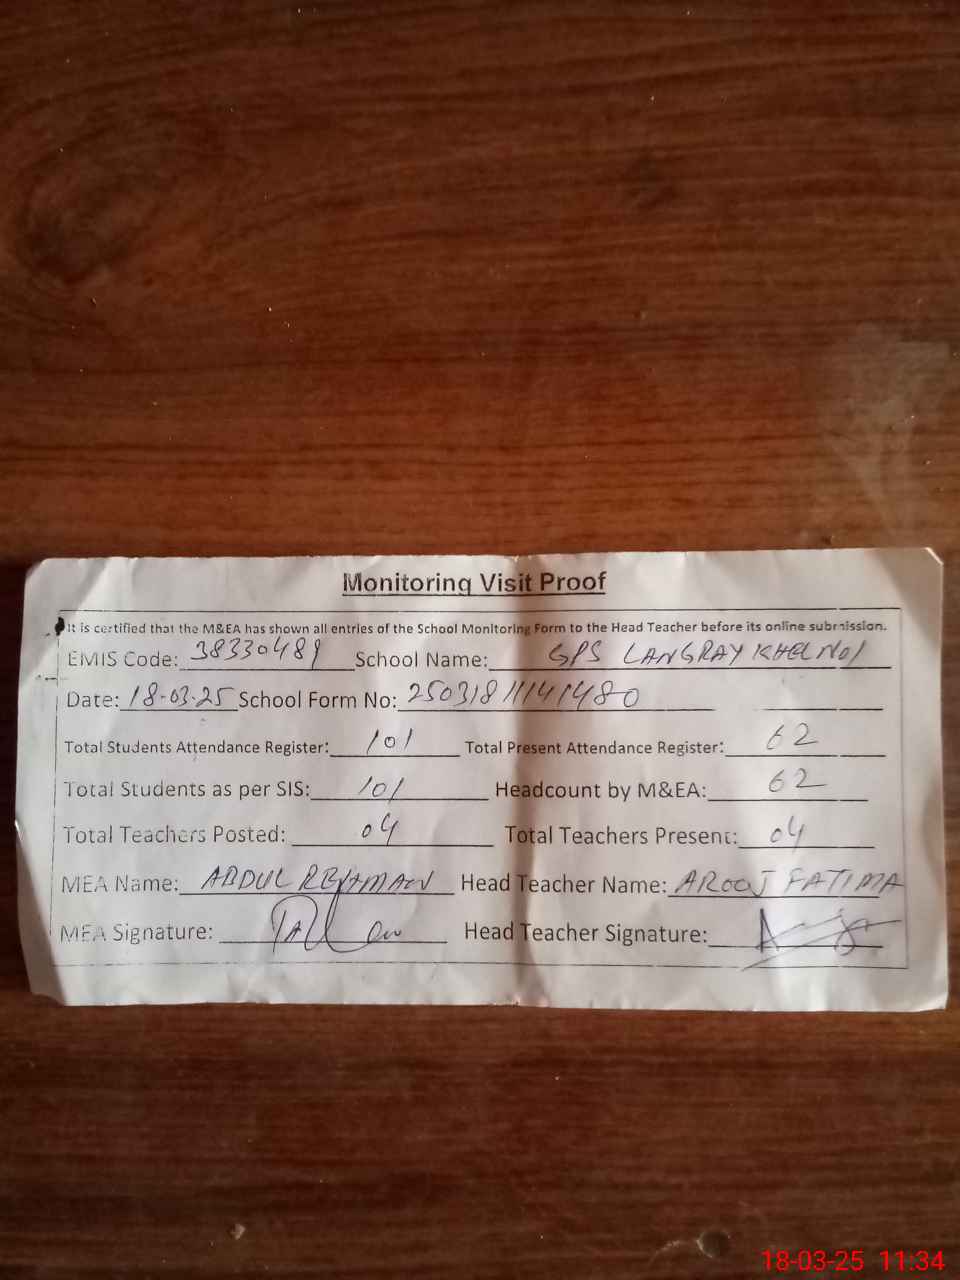 Monitoring Visit Proof
It is certified that the M&EA has shown all entries of the School Monitoring Form to the Head Teacher before its online submission.
EMIS Code: 38330489 School Name: GPS LANGRAY KHEL NO1
Date: 18-03-25 School Form No: 25031811141480
Total Students Attendance Register: 101 Total Present Attendance Register: 62
Total Students as per SIS: 101 Headcount by M&EA: 62
Total Teachers Posted: 04 Total Teachers Present: 04
MEA Name: ABDUL REHMAN Head Teacher Name: AROOJ FATIMA
MEA Signature: Head Teacher Signature:
18-03-25 11:34